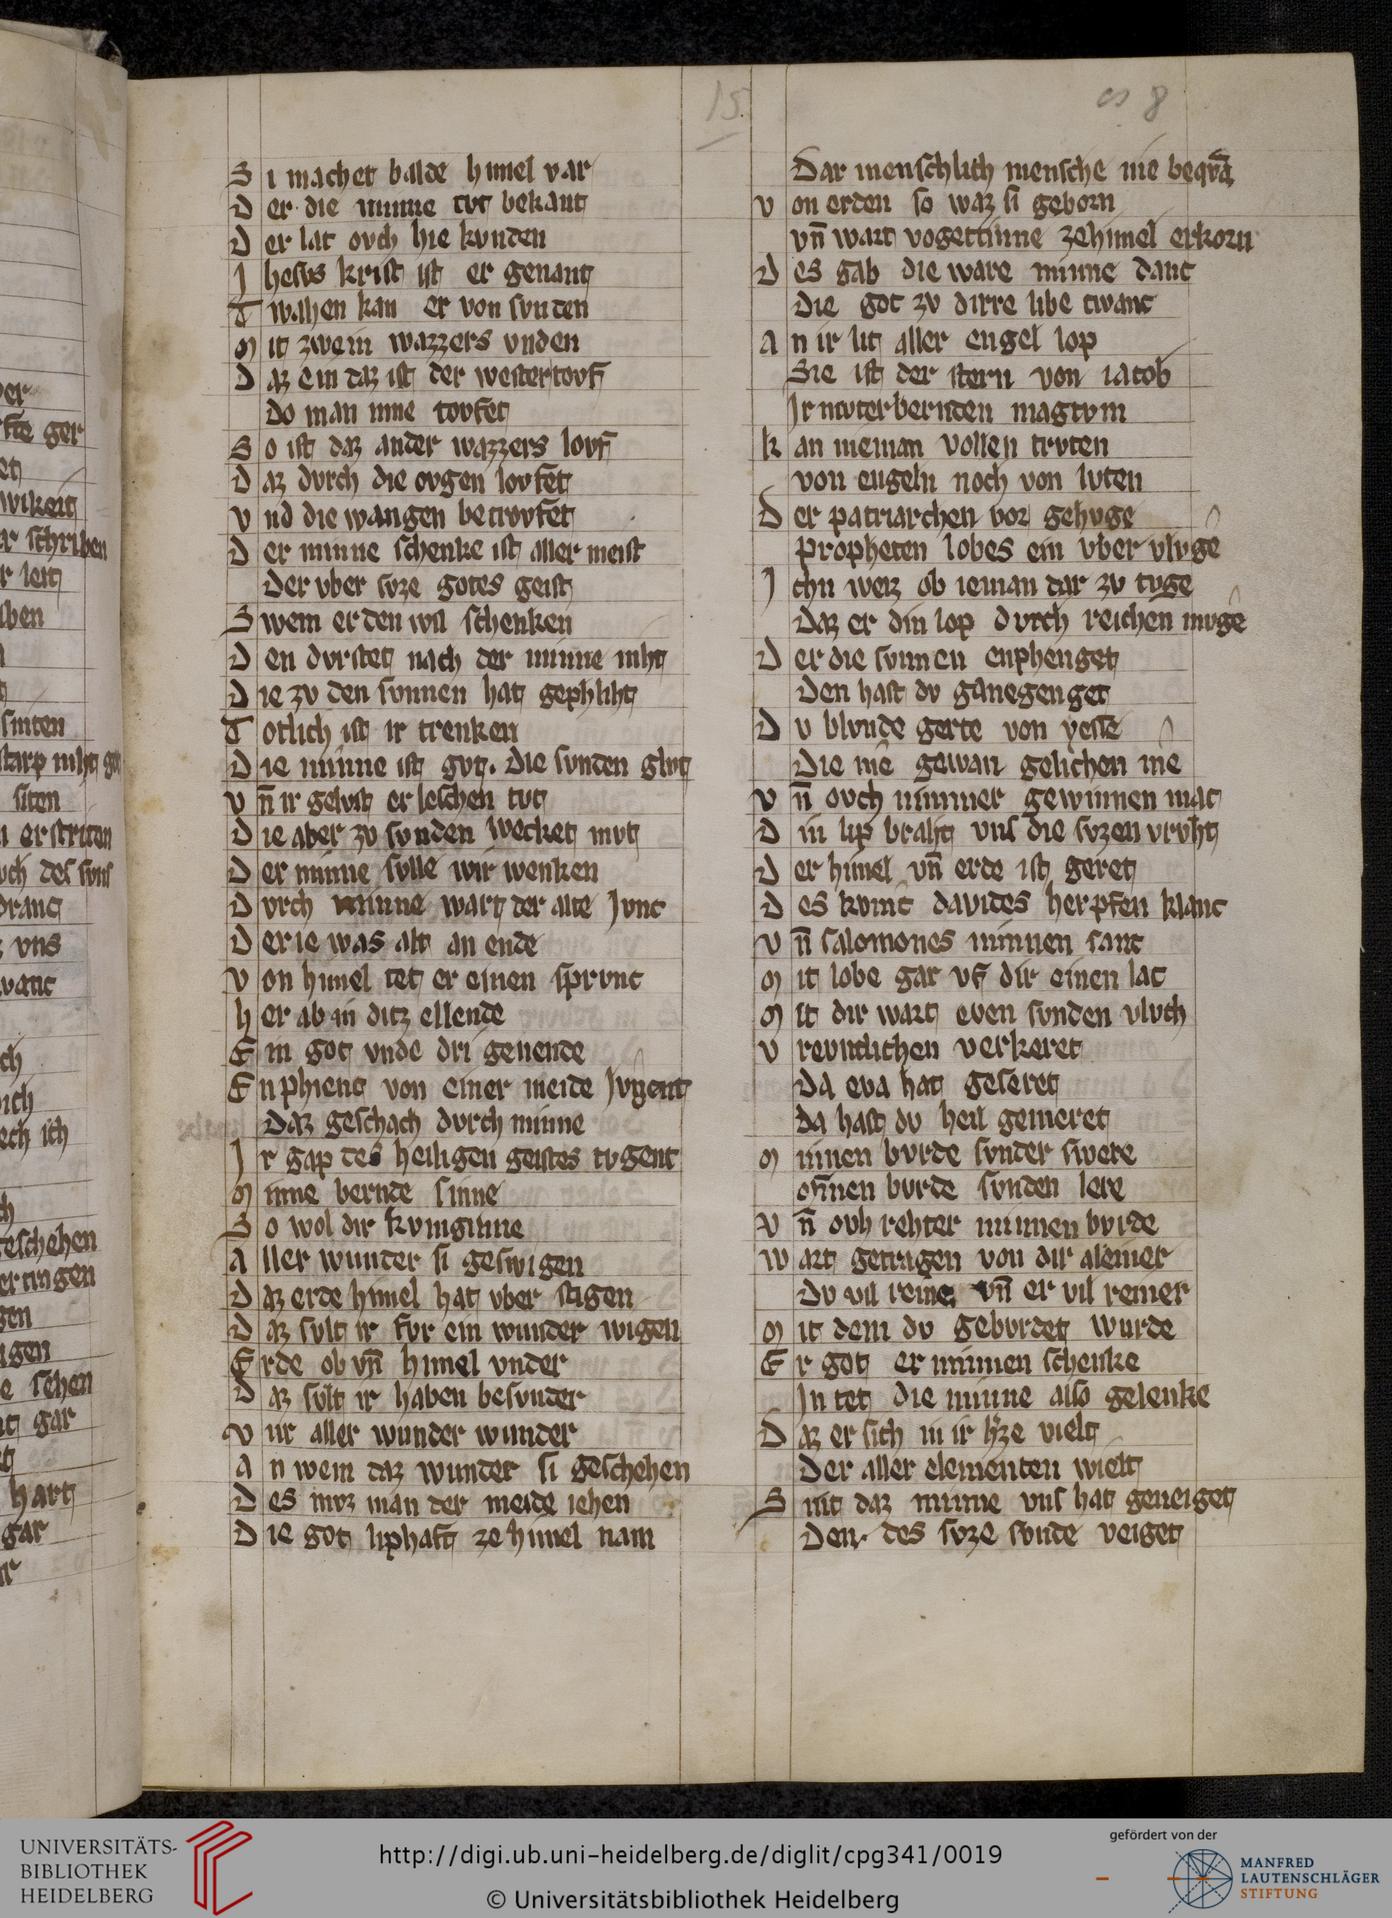 15
cs 8
Si machet balde himel var
Der die minne tvt bekant
Der lat ovch hie kvnden
Jhesvs krist ist er genant
Twahen kan er von svnden
Mit zwein wazzers vnden
Daz ein daz ist der westertovf
Do man inne tovfet
So ist daz ander wazzers lovf
Daz dvrch die ovgen lovfet
Vnd die wangen betrovfet
Der minne schenke ist aller meist
Der vber svze gotes geist
Swem er den wil schenken
Den dvrstet nach der minne niht
Die zv den svnnen hat gephliht
Totlich ist ir trenken
Die minne ist gvt. die svnden glvt
Vn̄ ir gelvst erleschen tvt
Die aber zv svnden wecket mvt
Der minne svlle wir wenken
Dvrch minne wart der alte Jvnc
Der ie was alt an ende
Von himel tet er einen sprvnc
Her ab in ditz ellende
Ein got vnde dri genende
Enphienc von einer meide Jvgent
Daz geschach dvrch minne
Jr gap des heiligen geistes tvgent
Minne bernde sinne
So wol dir kvniginne
Aller wunter si geswigen
Daz erde himel hat vber stigen
Daz svlt ir fvr ein wunder wigen
Erde ob vn̄ himel vnder
Daz svlt ir haben besvnder
Vur aller wunder wunder
An wem daz wunder si geschehen
Des mvz man der meide iehen
Die got liphaft ze himel nam
Dar menschlich mensche nie beqvā
Von erden so waz si geborn
Vn̄ wart vogettinne zehimel erkorn
Des gab die ware minne danc
Die got zv dirre libe twanc
An ir lit aller engel lop
Sie ist der stern von iacob
Jr mvterbernden magtvm
Kan nieman vollen trvten
Von engeln noch von lvten
Der patriarchen vor gehvge
Propheten lobes ein vber vlvge
Jchn weiz ob ieman dar zv tvge
Daz er din lop dvrch reichen mvge
Der die svnnen enphenget
Den hast dv ganegenget
Dv blvnde gerte von yesse
Die nie gewan gelichen me
Vn̄ ovch nimmer gewinnen mac
Din lip braht vns die svzen vrvht
Der himel vn̄ erde ist geret
Des kvmt davides herpfen klanc
Vn̄ salomones minnen sanc
Mit lobe gar vf dir einen lac
Mit dir wart even svnden vlvch
Vrevntlichen verkeret
Da eva hat geseret
Da hast dv heil gemeret
Minnen bvrde svnder swere
Mīnen bvrde svnden lere
Vn̄ ovh rehter minnen bvrde
Wart getragen von dir aleiner
Dv vil reine vn̄ er vil reiner
Mit dem dv gebvrdet wurde
Er got er minnen schenke
Jn tet die minne also gelenke
Daz er sich in ir h'ze vielt
Der aller elementen wielt
Sint daz minne vns hat geneiget
Den. des svze svnde veiget
UNIVERSITÄTS-
BIBLIOTHEK
HEIDELBERG
http://digi.ub.uni-heidelberg.de/diglit/cpg341/0019
© Universitätsbibliothek Heidelberg
gefördert von der
MANFRED
LAUTENSCHLÄGER
STIFTUNG